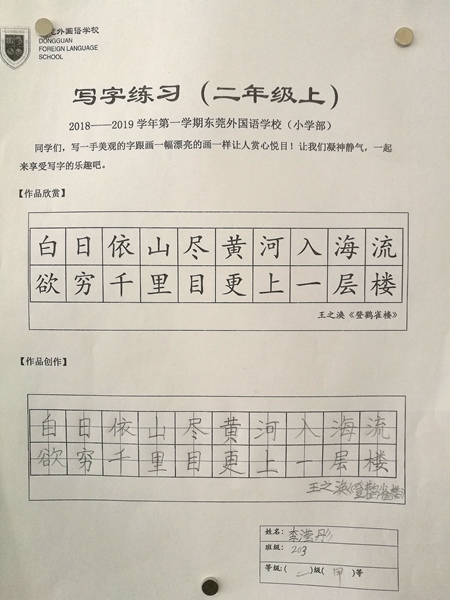 莞外国语学校
DONGGUAN
FOREIGN LANGUAGE
SCHOOL
写字练习（二年级上）
2018——2019 学年第一学期东莞外国语学校（小学部）
同学们，写一手美观的字跟画一幅漂亮的画一样让人赏心悦目！让我们凝神静气，一起
来享受写字的乐趣吧。
【作品欣赏】
白日依山尽黄河入海流
欲穷千里目更上一层楼
王之涣《登鹳雀楼》
【作品创作】
白日依山尽黄河入海流
欲穷千里目更上一层楼
王之涣《登鹳雀楼》
姓名：李滢彤
班级：203
等级：（二）级（甲）等